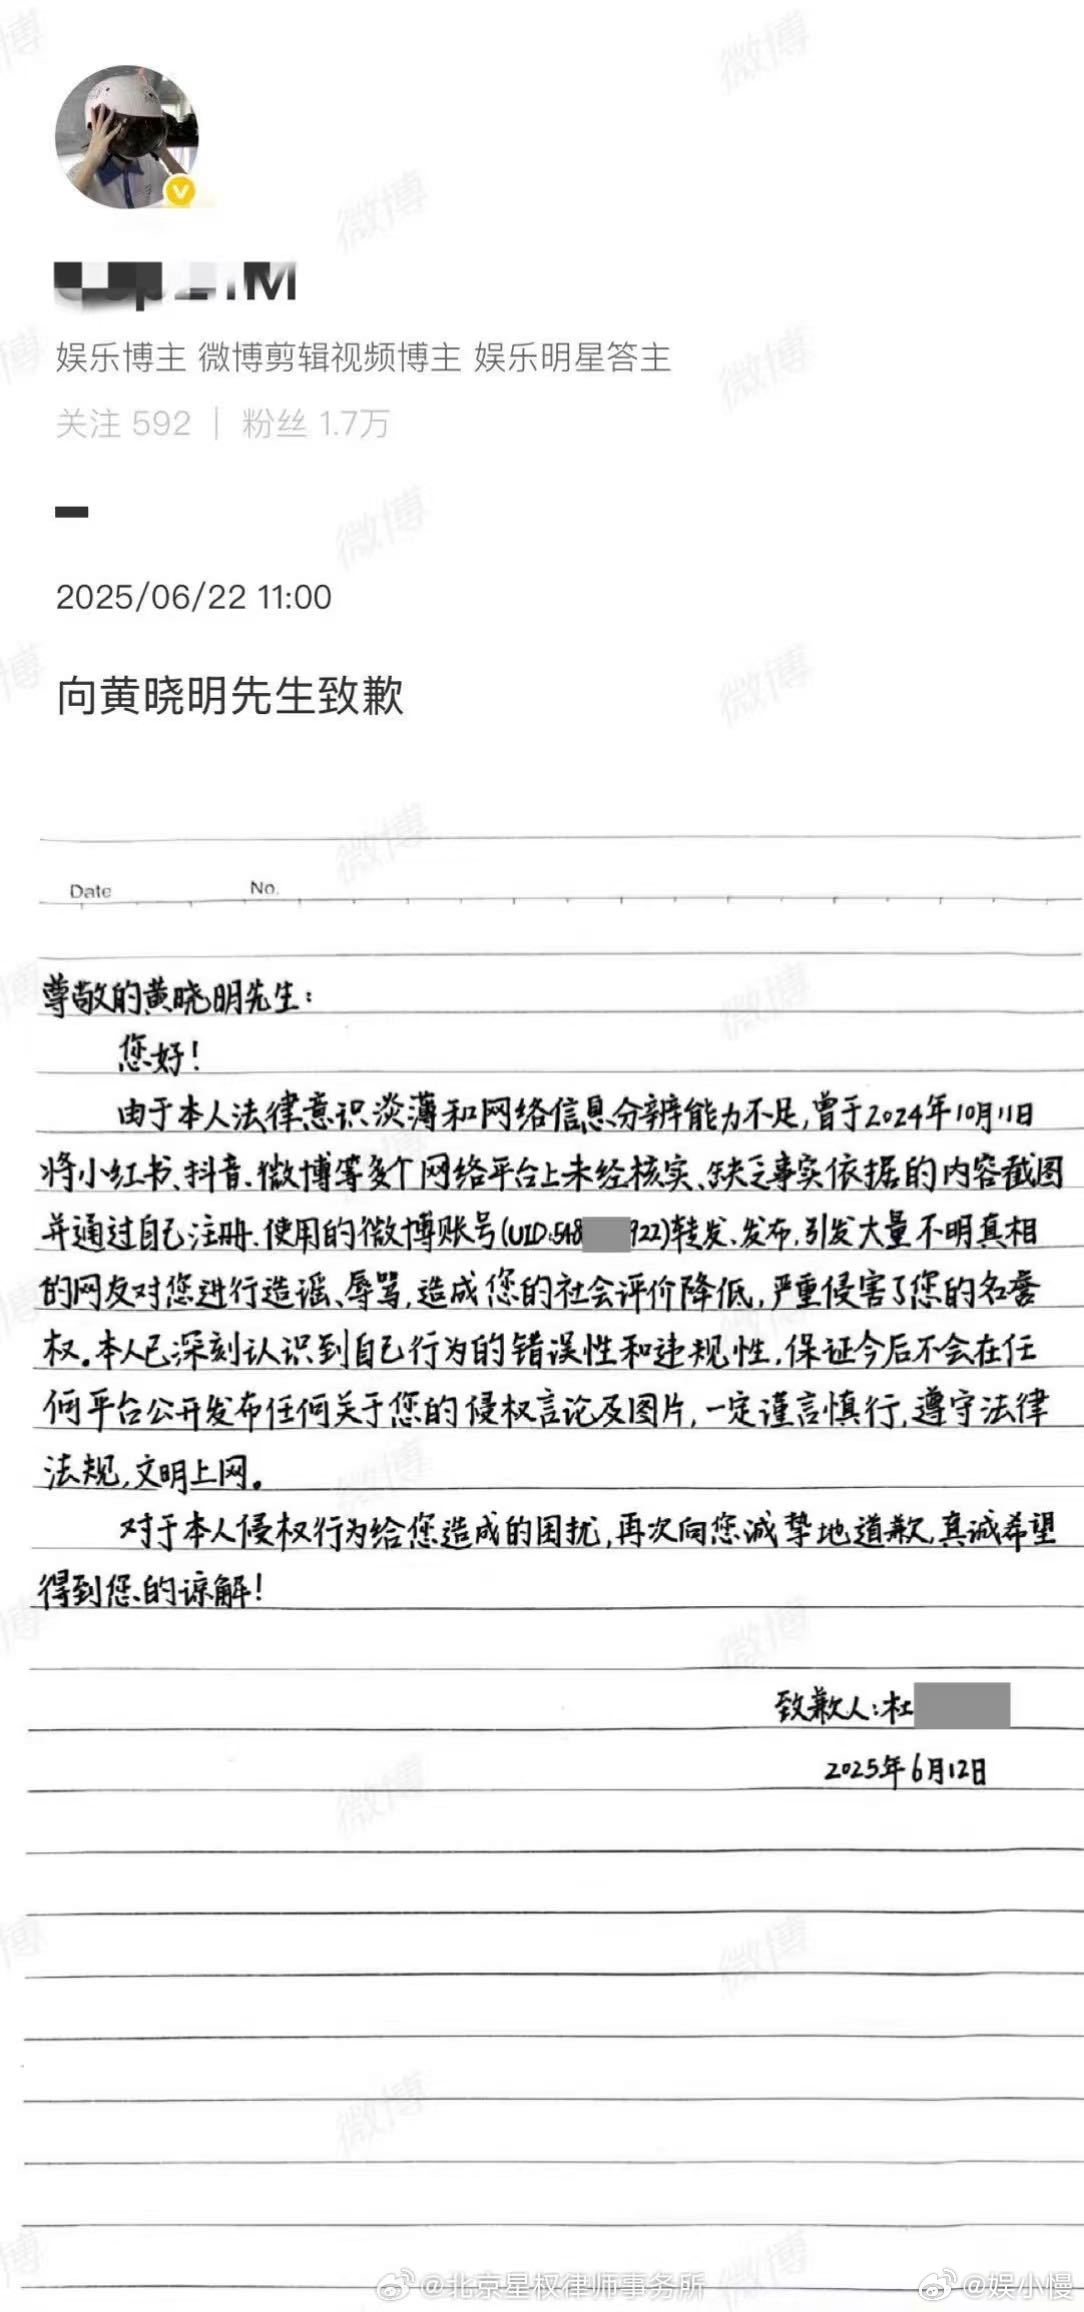 娱乐博主 微博剪辑视频博主 娱乐明星答主
关注 592 | 粉丝 1.7万
2025/06/22 11:00
向黄晓明先生致歉
Date No.
尊敬的黄晓明先生：
您好！
由于本人法律意识淡薄和网络信息分辨能力不足，曾于2024年10月11日
将小红书、抖音、微博等多个网络平台上未经核实、缺乏事实依据的内容截图
并通过自己注册、使用的微博账号(UID:548 922)转发、发布，引发大量不明真相
的网友对您进行造谣、辱骂，造成您的社会评价降低，严重侵害了您的名誉
权。本人已深刻认识到自己行为的错误性和违规性，保证今后不会在任
何平台公开发布任何关于您的侵权言论及图片，一定谨言慎行，遵守法律
法规，文明上网。
对于本人侵权行为给您造成的困扰，再次向您诚挚地道歉，真诚希望
得到您的谅解！
致歉人：杜
2025年6月12日
@北京星权律师事务所
@娱小慢
微博